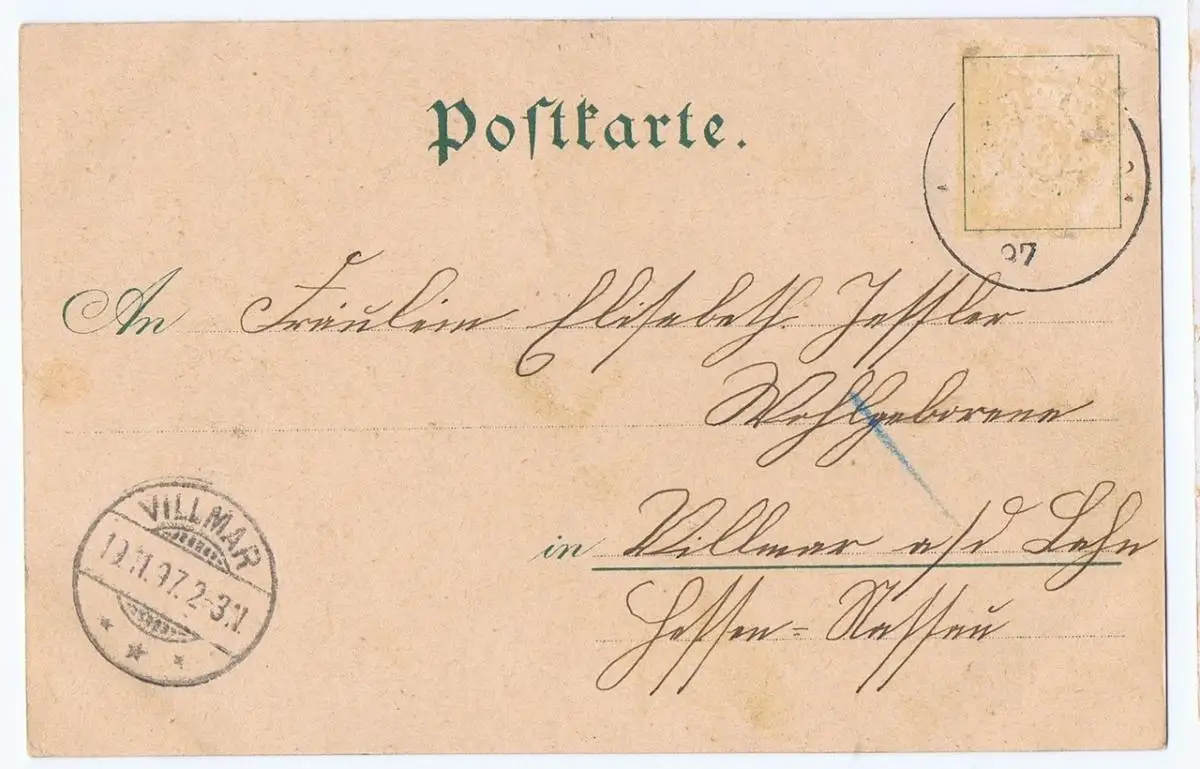 Postkarte.
97
An Fräulein Elisabeth
Wohlgeborene
VILLMAR
19.11.97.2-3N.
in Villmar a/d Lahn
Hessen-Nassau